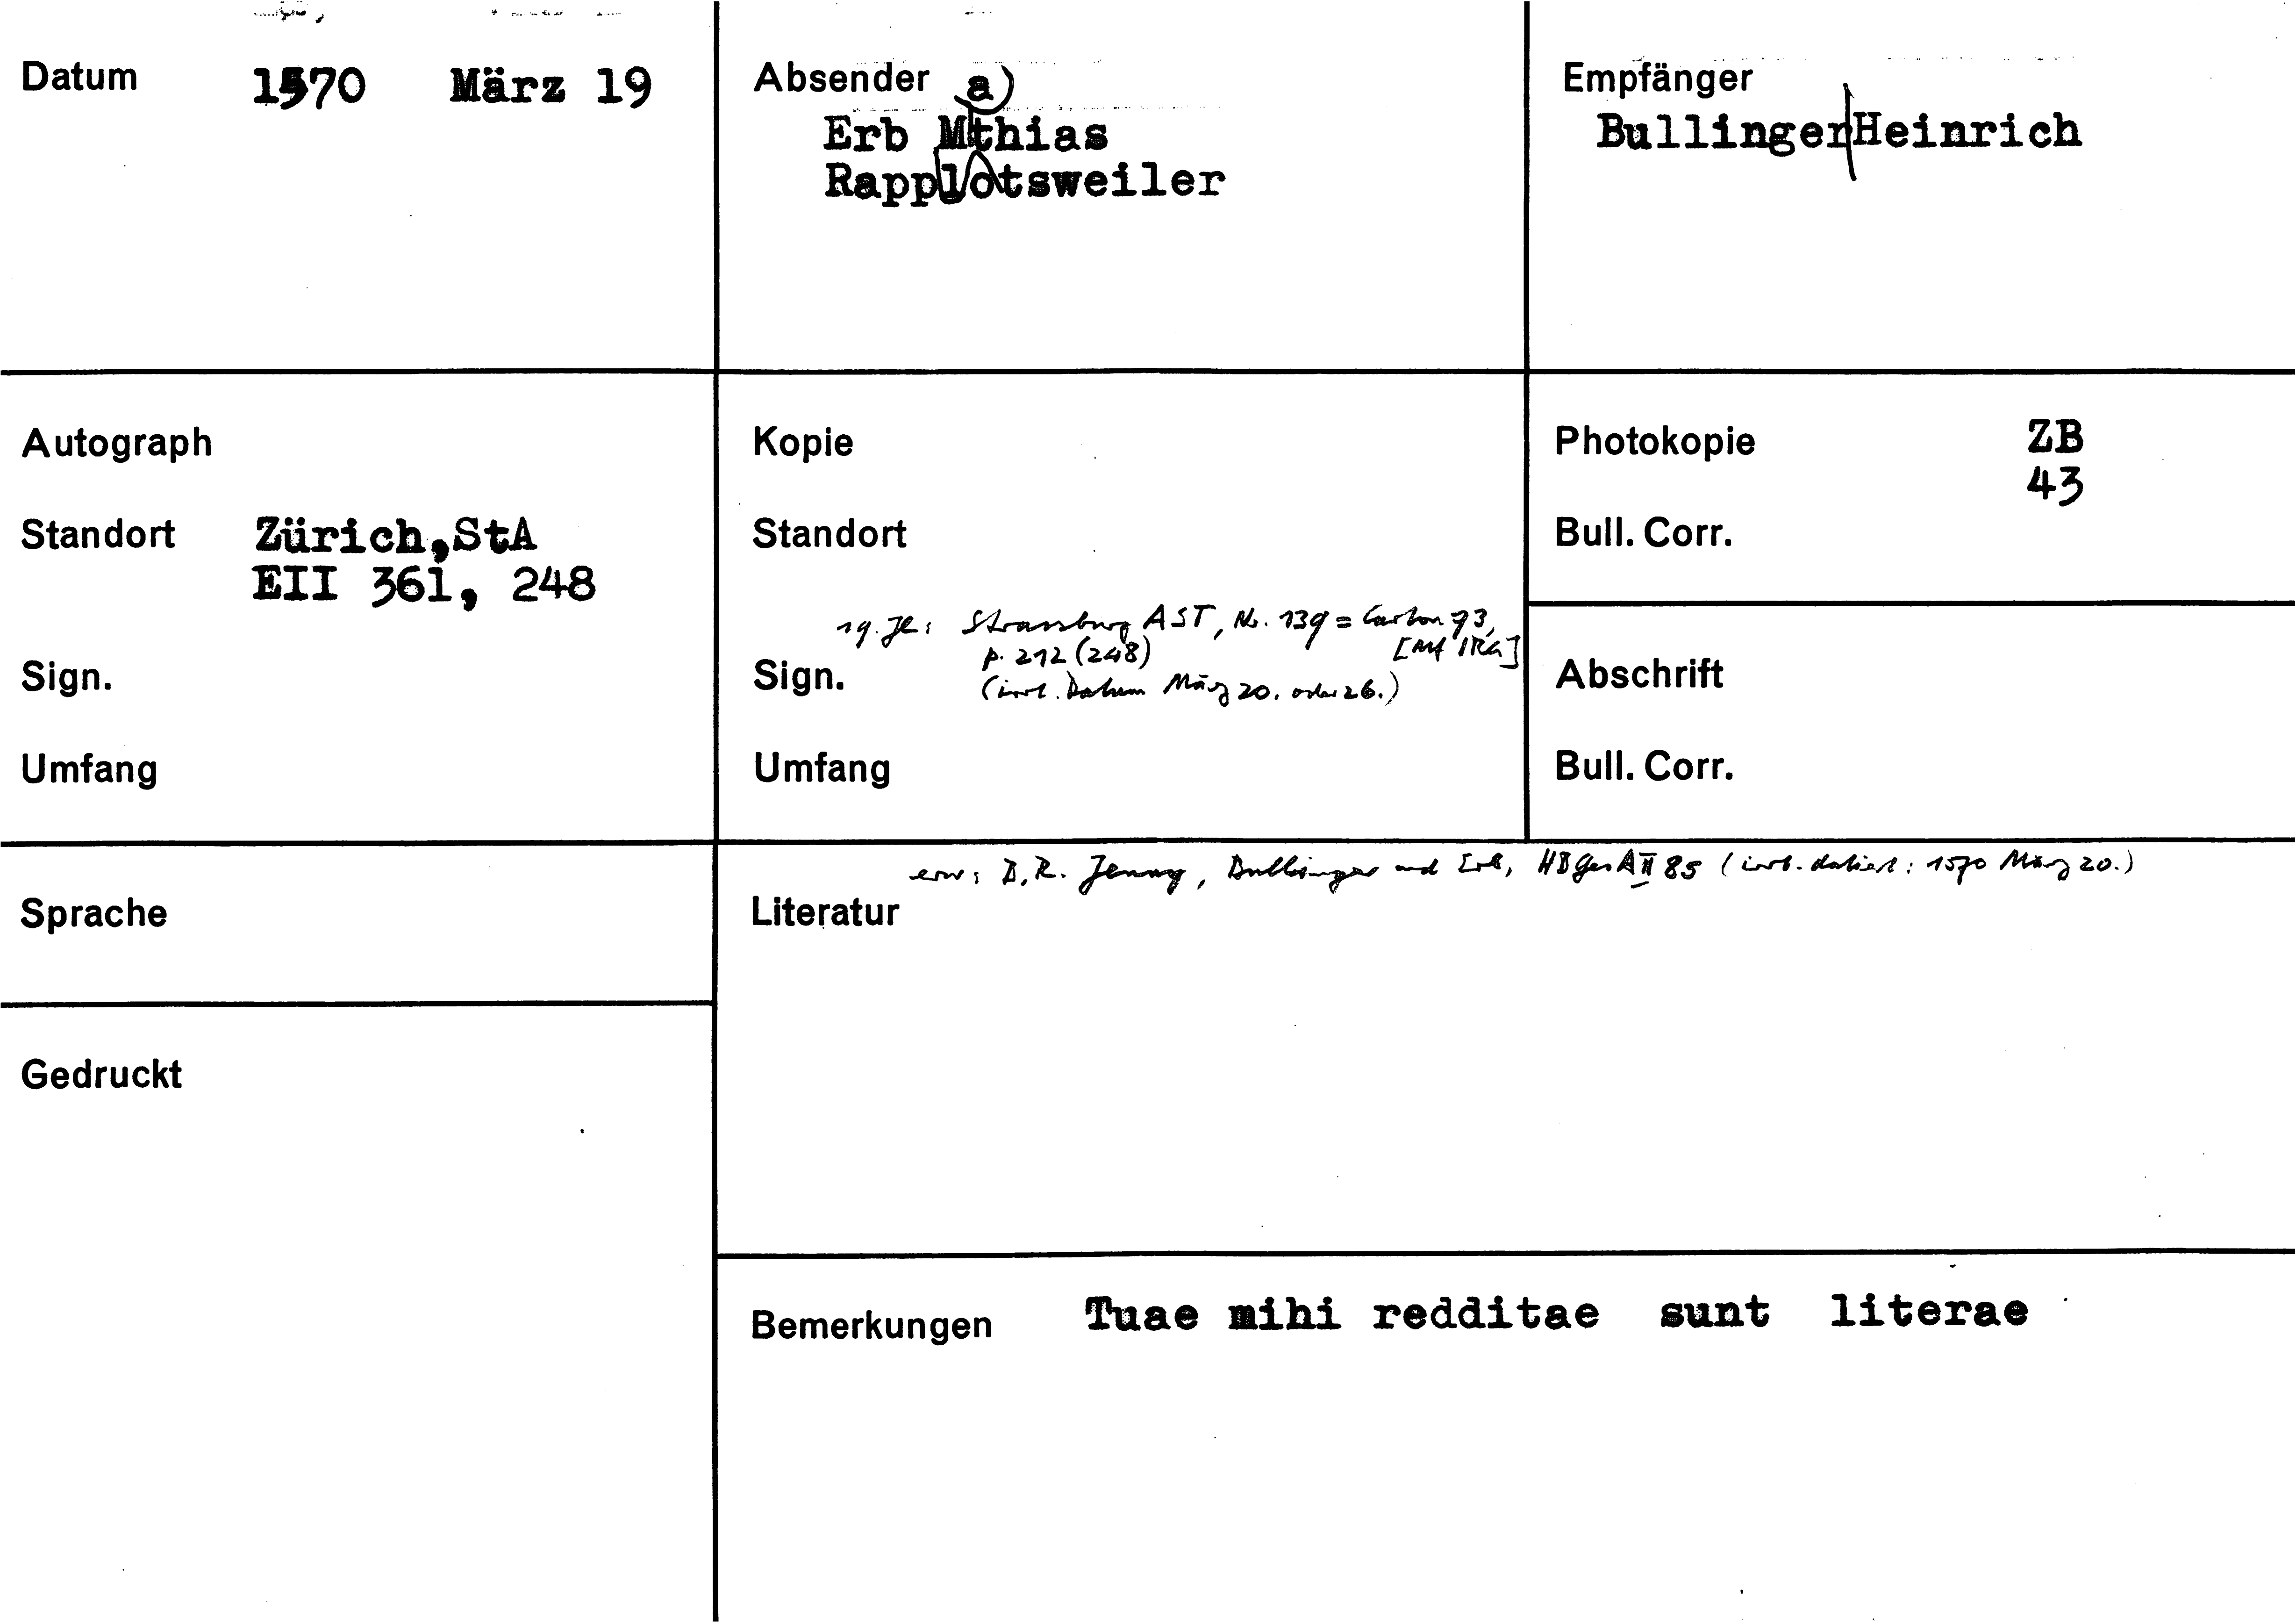 Datum 1570 März 19
Absender a)
Erb Mthias
Rapplotsweiler
Empfänger
Bullinger Heinrich
Autograph
Standort Zürich, StA
EII 361, 248
Sign.
Umfang
Kopie
Standort
19. Jh: Strassburg AST, Nr. 139 = Carton 73,
p. 212 (248) [Mf IRG]
Sign. (irrt. Datum März 20. oder 26.)
Umfang
Photokopie ZB
43
Bull. Corr.
Abschrift
Bull. Corr.
Sprache
Gedruckt
erw: B.R. Jenny, Bullinger und Erb, HBGesA II 85 (irrt. datiert: 1570 März 20.)
Literatur
Bemerkungen Tuae mihi redditae sunt literae